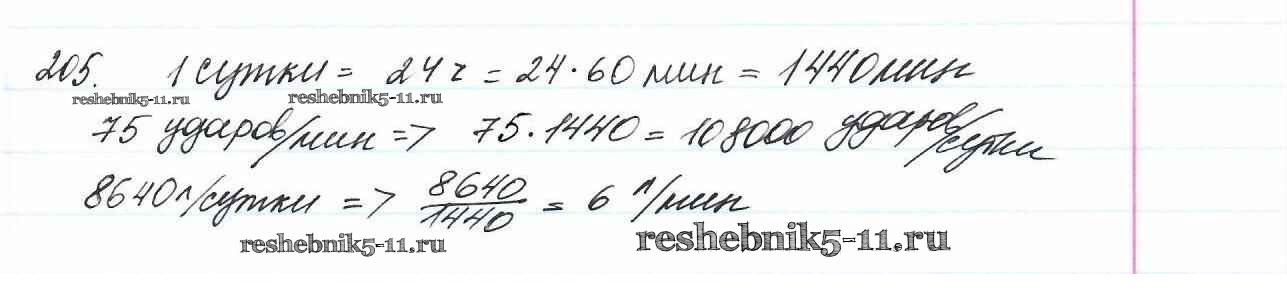 205. 1 сутки = 24 ч = 24 · 60 мин = 1440 мин
reshebnik5-11.ru reshebnik5-11.ru
75 ударов/мин => 75 · 1440 = 108000 ударов/сутки
8640 л/сутки => 8640/1440 = 6 л/мин
reshebnik5-11.ru reshebnik5-11.ru